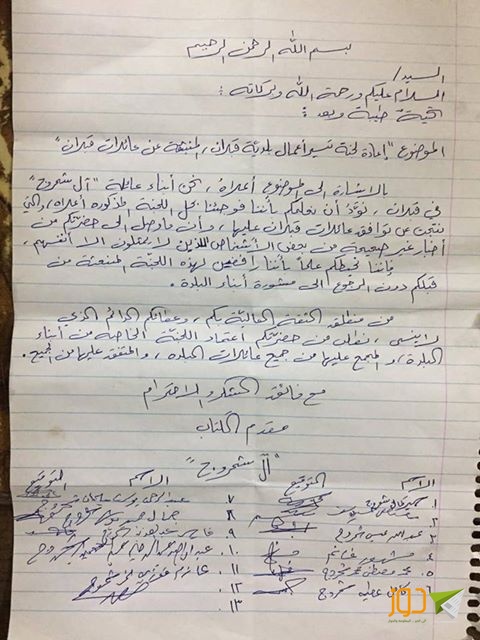 بسم الله الرحمن الرحيم
السيد/
السلام عليكم ورحمة الله وبركاته :
تحية طيبة وبعد :
الموضوع "إعادة لجنة تسيير أعمال بلدية قبلان، المنبثقة عن عائلات قبلان"
بالاشارة الى الموضوع أعلاه، نحن أبناء عائلة "آل شحروج"
في قبلان، نودّ أن نعلمكم بأننا فوجئنا بحل اللجنة المذكوره أعلاه، والتي
نتجت عن توافق عائلات قبلان عليها، وأن ما وصل الى حضرتكم من
أخبار غير صحيحة من بعض الأشخاص اللذين لا يمثلون الا أنفسهم،
بأننا نحيطكم علماً بأننا رافضين لهذه اللجنة المنبعثة من
قبلكم دون الرجوع الى مشورة أبناء البلدة.
من منطلق الثقة العالية بكم، وعطائكم الدائم الذي
لا ينسى، نطلب من حضرتكم اعتماد اللجنة الخاصة من أبناء
البلدة، و المجمع عليها من جميع عائلات البلده، والمتفق عليها من الجميع.
مع فائق الشكر والاحترام
مقدم الكتاب
"آل شحروج"
الاسم التوقيع الاسم التوقيع
١.
٢.
٣.
٤ مشهور غانم
٥. محمد مصطفى محمد شحروج
٦ شحروج
٧
٨ جمال
٩
١٠.
١١
١٢.
١٣.
دوز